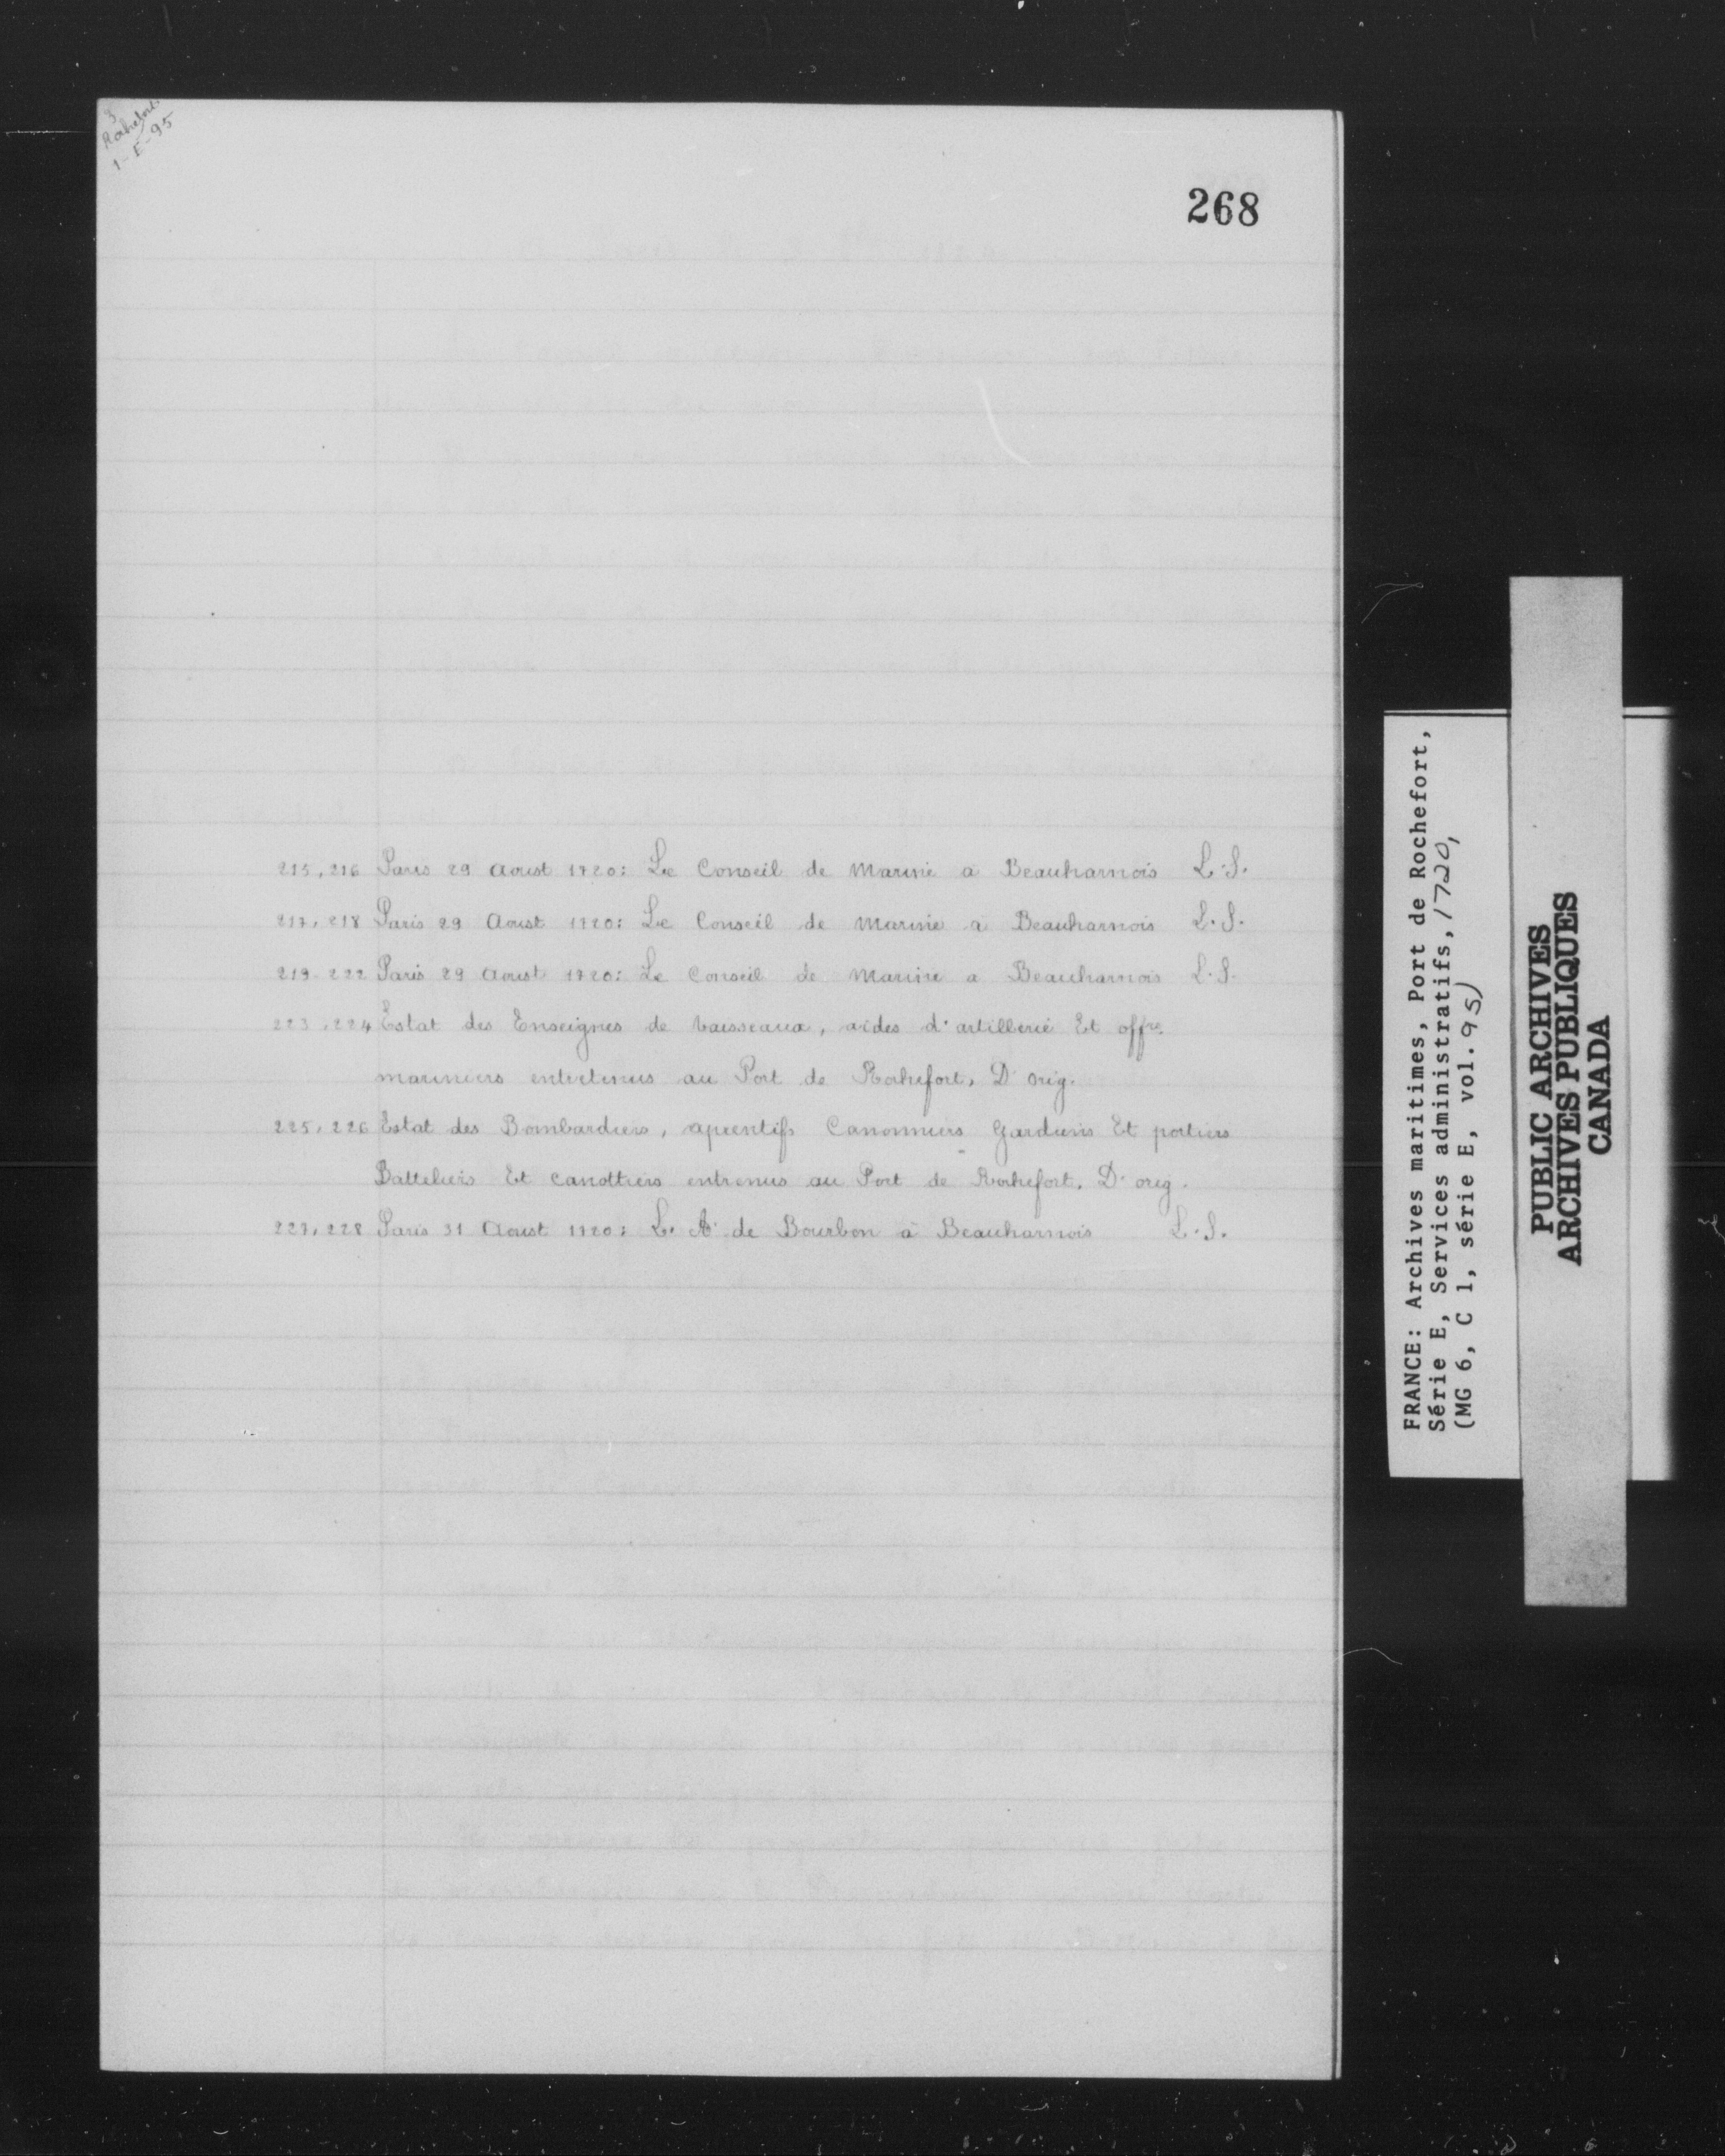 Rochefort
1-E-95
268
215, 216 Paris 29 Aoust 1720: Le Conseil de Marine à Beauharnois L.S.
217, 218 Paris 29 Aoust 1720: Le Conseil de Marine à Beauharnois L.S.
219-222 Paris 29 Aoust 1720: Le Conseil de Marine a Beauharnois L.S.
223, 224 Estat des Enseignes de Vaisseaux, aides d'artillerie Et offrs
mariniers entretenus au Port de Rochefort, D. orig.
225, 226 Estat des Bombardiers, aprentifs Canonniers Gardiens Et portiers
Batteliers Et canottiers entrenus au Port de Rochefort. D. orig.
227, 228 Paris 31 Aoust 1720: L. A. de Bourbon à Beauharnois L.S.
FRANCE: Archives maritimes, Port de Rochefort,
Série E, Services administratifs, 1720,
(MG 6, C 1, série E, vol. 95)
PUBLIC ARCHIVES
ARCHIVES PUBLIQUES
CANADA